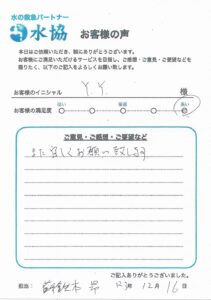 水の救急パートナー
水協 お客様の声
本日はご依頼いただき、誠にありがとうございます。
お客様にご満足いただけるサービスを目指し、ご感想・ご意見・ご要望などを
賜りたく、以下のご記入をよろしくお願い致します。
お客様のイニシャル Y.Y. 様
お客様の満足度
ご意見・ご感想・ご要望など
また宜しくお願い致します
ご記入ありがとうございました。
担当: 年 12月 16日